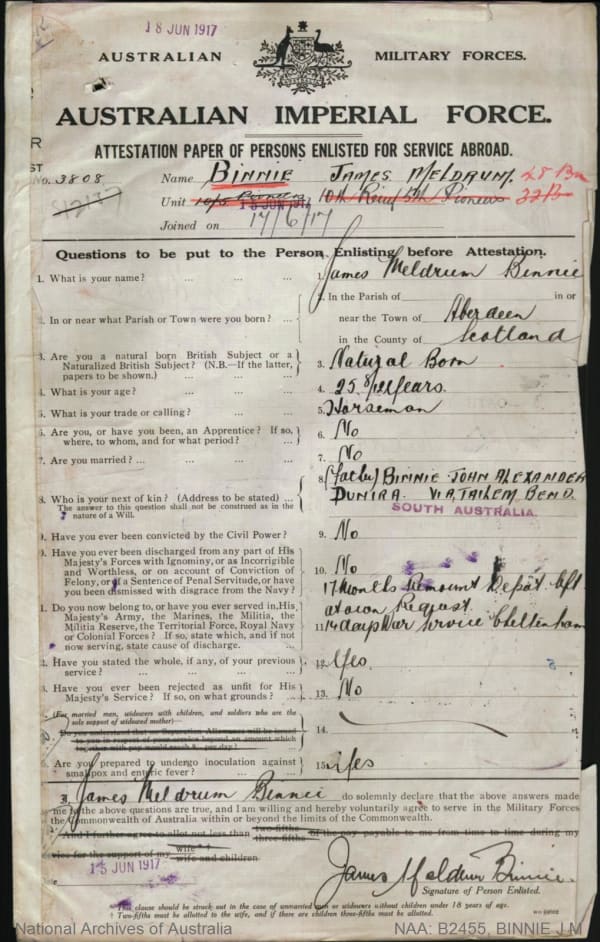 18 JUN 1917
AUSTRALIAN MILITARY FORCES.
AUSTRALIAN IMPERIAL FORCE.
ATTESTATION PAPER OF PERSONS ENLISTED FOR SERVICE ABROAD.
No. 3808 Name BINNIE JAMES MELDRUM.
Unit 10/5 Pioneers 15 JUN 1917 10th Reinf 5th Pioneers 32 Bn
Joined on 17/6/17
Questions to be put to the Person Enlisting before Attestation.
1. What is your name? ... ... ... 1. James Meldrum Binnie
2. In the Parish of in or
. In or near what Parish or Town were you born? ... near the Town of Aberdeen
in the County of Scotland
3. Are you a natural born British Subject or a
Naturalized British Subject? (N.B.—If the latter,
papers to be shown.) ... ... ... 3. Natural Born
4. What is your age? ... ... ... 4. 25 years.
5. What is your trade or calling? ... ... 5. Horseman
6. Are you, or have you been, an Apprentice? If so,
where, to whom, and for what period? ... 6. No
7. Are you married? ... ... ... ... 7. No
8. (Father) BINNIE JOHN ALEXANDER
8. Who is your next of kin? (Address to be stated) ... DUNIRA. VIA, TAILEM BEND.
The answer to this question shall not be construed as in the
nature of a Will.
SOUTH AUSTRALIA.
. Have you ever been convicted by the Civil Power? 9. No
. Have you ever been discharged from any part of His
Majesty's Forces with Ignominy, or as Incorrigible
and Worthless, or on account of Conviction of
Felony, or of a Sentence of Penal Servitude, or have
you been dismissed with disgrace from the Navy? 10. No
17 Months Remount Depot left
at own Request
1. Do you now belong to, or have you ever served in, His
Majesty's Army, the Marines, the Militia, the
Militia Reserve, the Territorial Force, Royal Navy
or Colonial Forces? If so, state which, and if not
now serving, state cause of discharge. ... 11. 14 days War Service Cheltenham
2. Have you stated the whole, if any, of your previous
service? ... ... ... ... 12. Yes
3. Have you ever been rejected as unfit for His
Majesty's Service? If so, on what grounds? ... 13. No
(For married men, widowers with children, and soldiers who are the
sole support of widowed mother)—
Do you understand that no Separation Allowance will be issued
14.
5. Are you prepared to undergo inoculation against
smallpox and enteric fever? ... ... 15. Yes
I, James Meldrum Binnie do solemnly declare that the above answers made
me to the above questions are true, and I am willing and hereby voluntarily agree to serve in the Military Forces
the Commonwealth of Australia within or beyond the limits of the Commonwealth.
And I further agree to allot not less than two-fifths three-fifths of the pay payable to me from time to time during my
vice for the support of my wife * † wife and children
15 JUN 1917
James Meldrum Binnie.
Signature of Person Enlisted.
*This clause should be struck out in the case of unmarried men or widowers without children under 18 years of age.
† Two-fifths must be allotted to the wife, and if there are children three-fifths must be allotted.
National Archives of Australia NAA: B2455, BINNIE J M